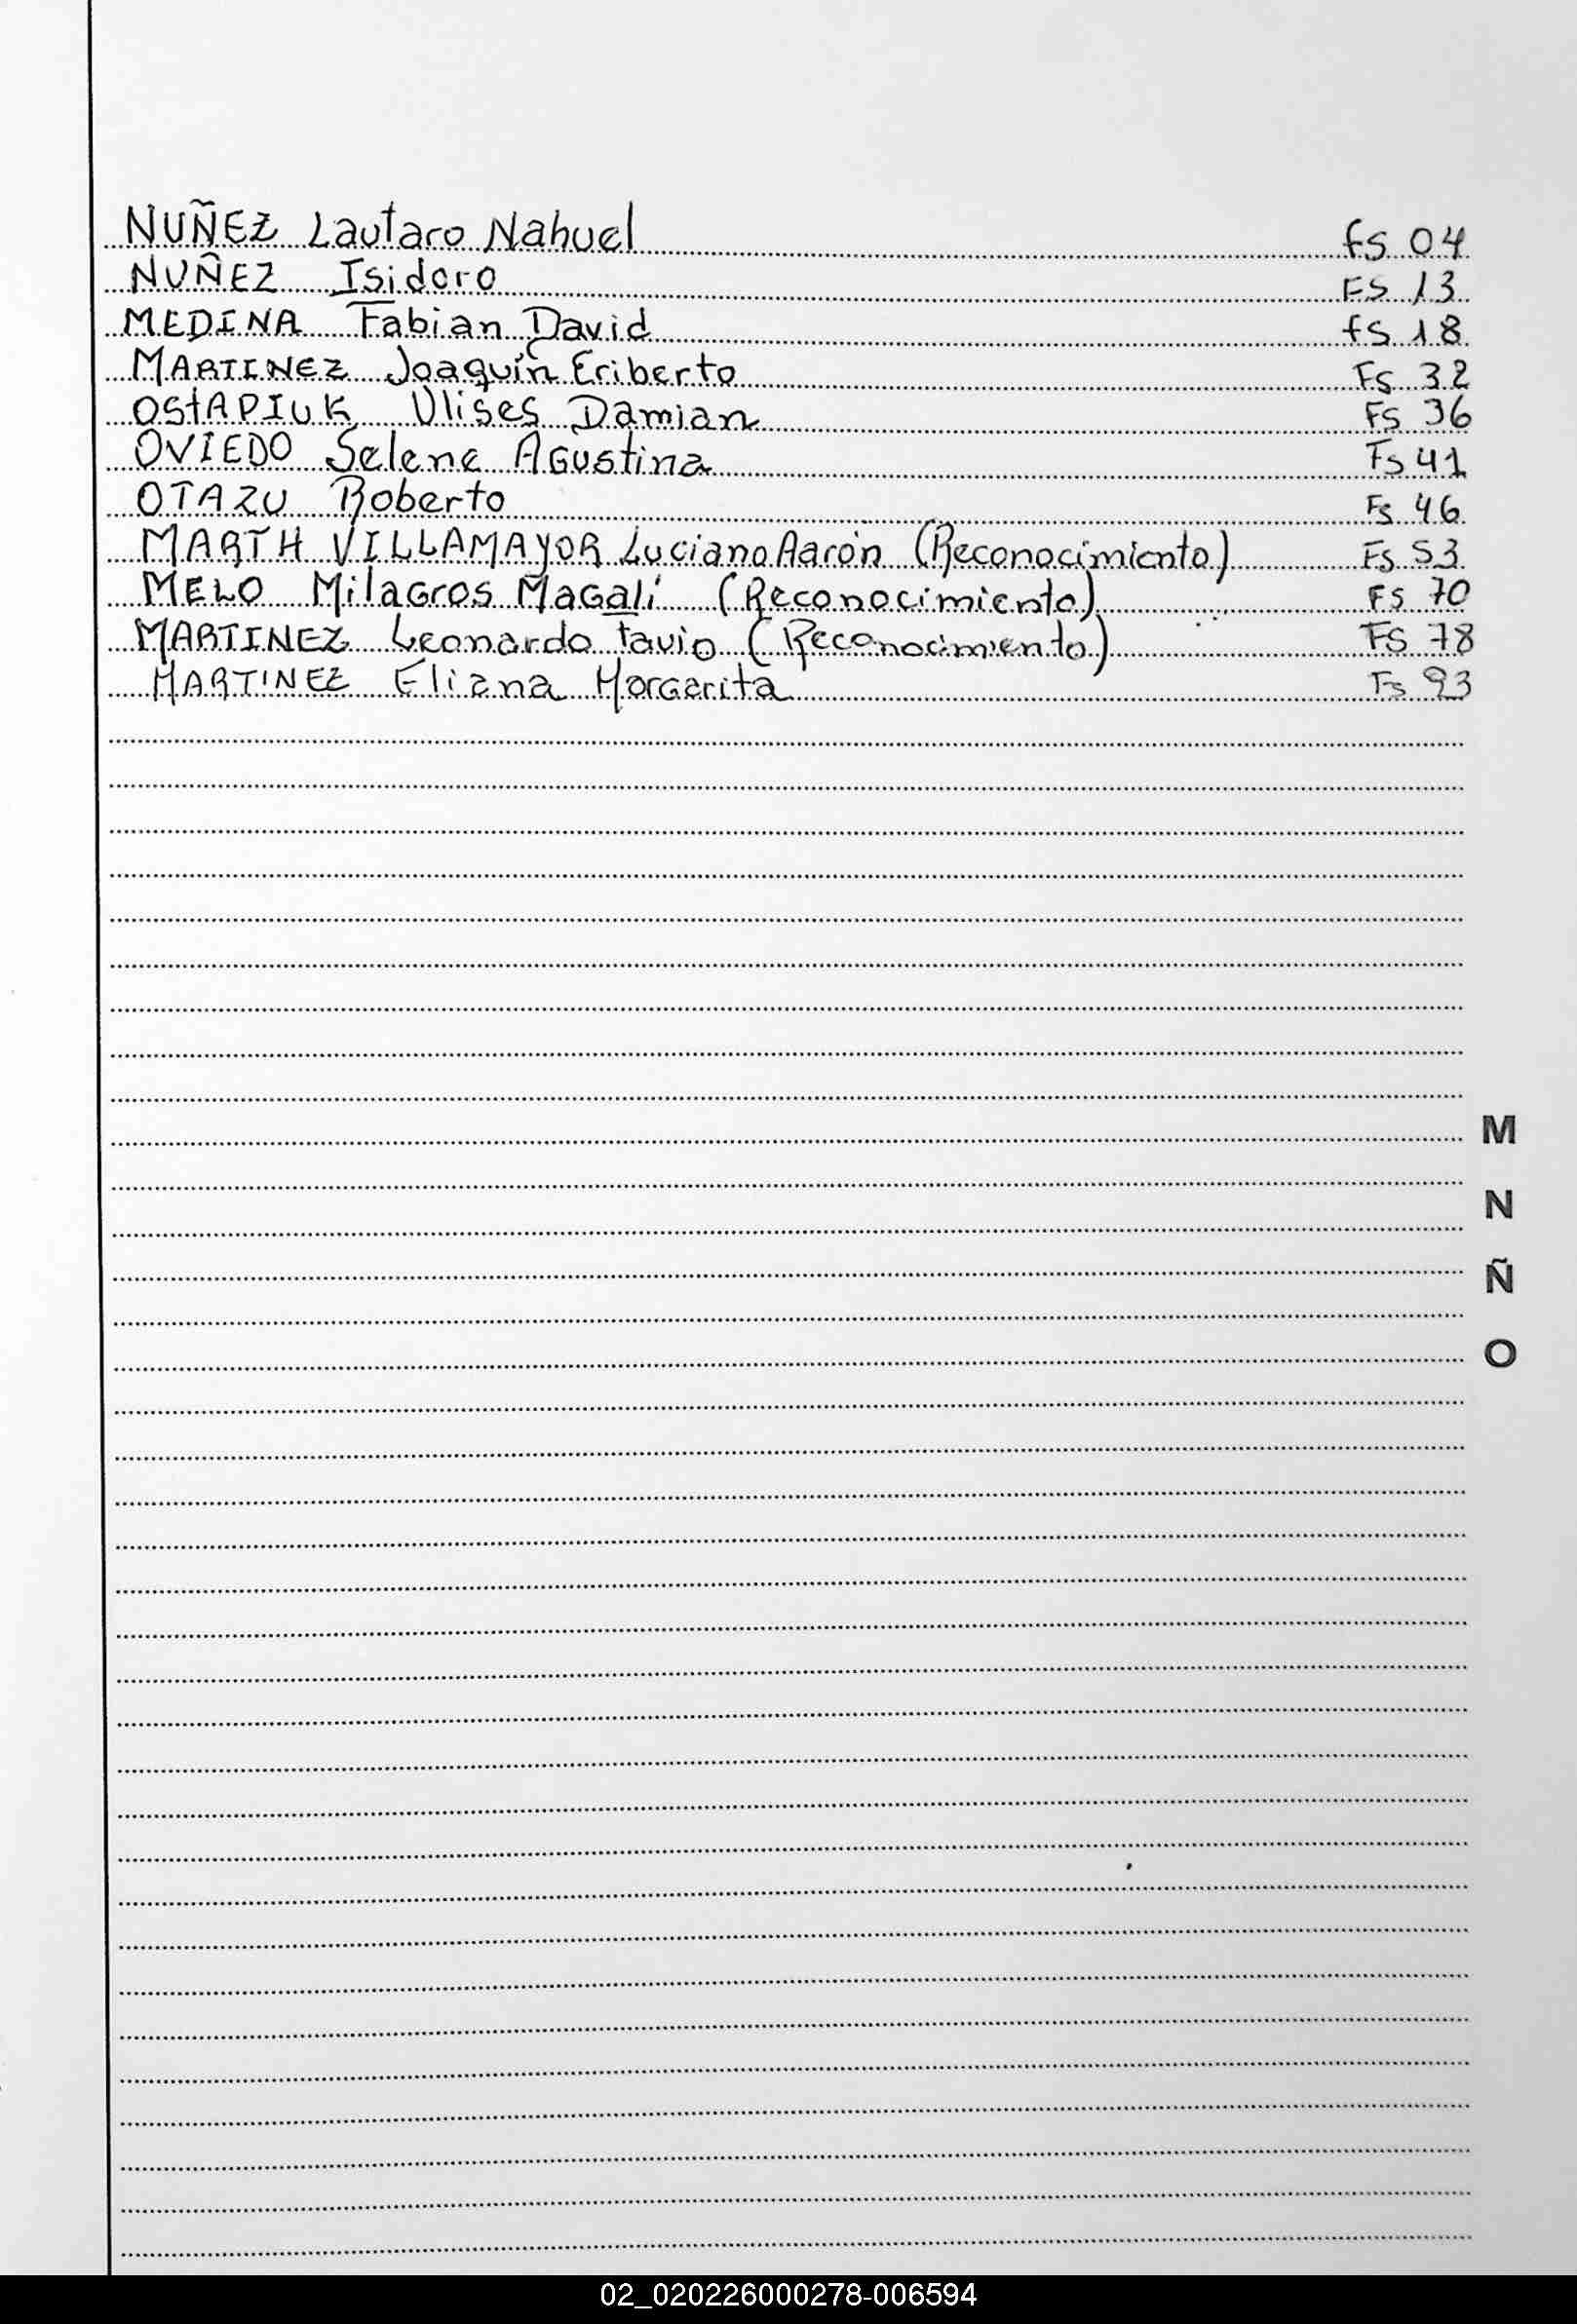 NUÑEZ Lautaro Nahuel fs 04
NUÑEZ Isidoro FS 13
MEDINA Fabian David fs 18
MARTINEZ Joaquín Eriberto Fs 32
OStAPIUK Ulises Damian Fs 36
OVIEDO Selene AGustina Fs 41
OTAZU Roberto Fs 46
MARTH VILLAMAYOR Luciano Aarón (Reconocimiento) Fs 53
MELO Milagros Magalí (Reconocimiento) FS 70
MARTINEZ Leonardo Favio (Reconocimiento) FS 78
MARTINEZ Eliana Margarita Fs 93
M
N
Ñ
O
02_020226000278-006594